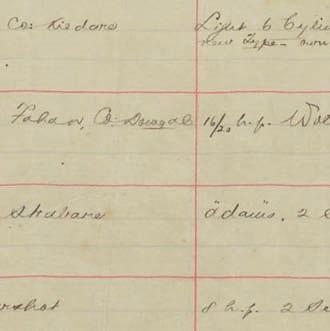 Co: Kildare
Light 6 Cylin
new Type -
Fahan, Co: Donegal
16/20 h.p. Wol
Strabane
Adams, 2
rshot
8 h.p. 2 Se